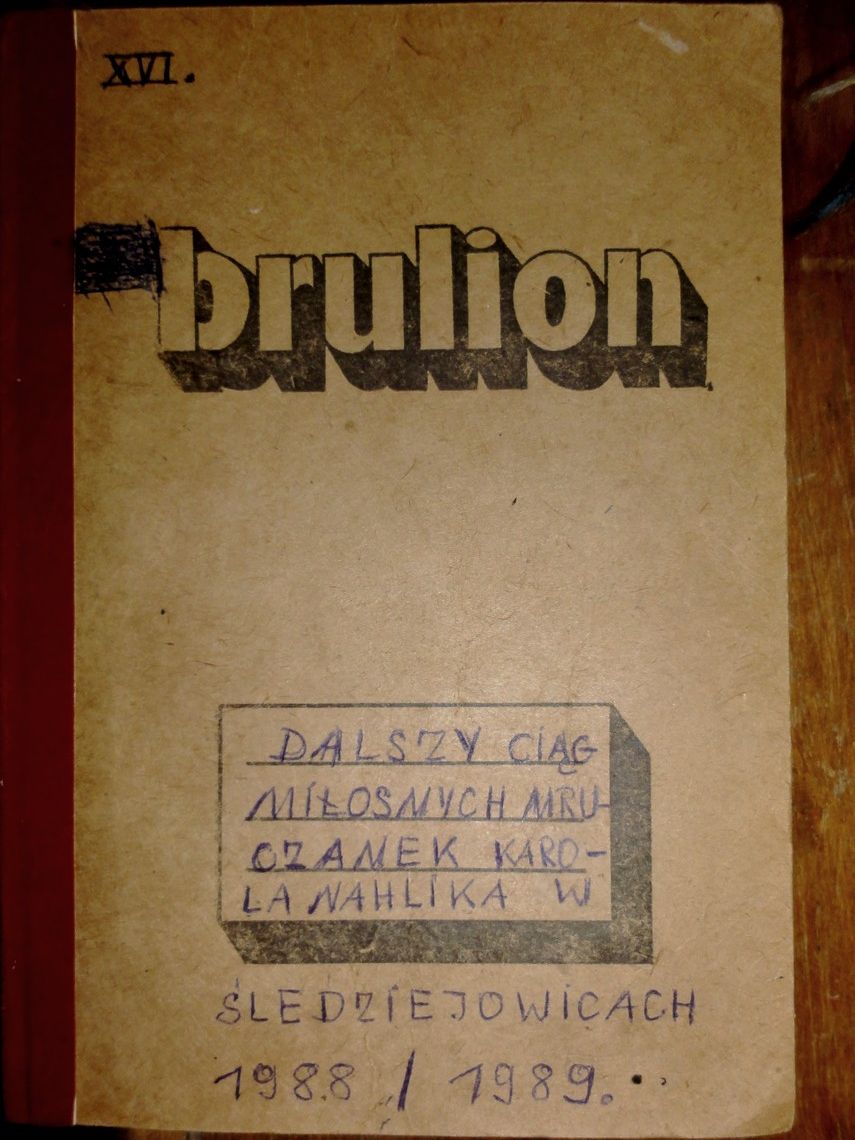 XVI.
brulion
DALSZY CIĄG
MIŁOSNYCH MRU-
CZANEK KARO-
LA NAHLIKA W
ŚLEDZIEJOWICACH
1988 / 1989.